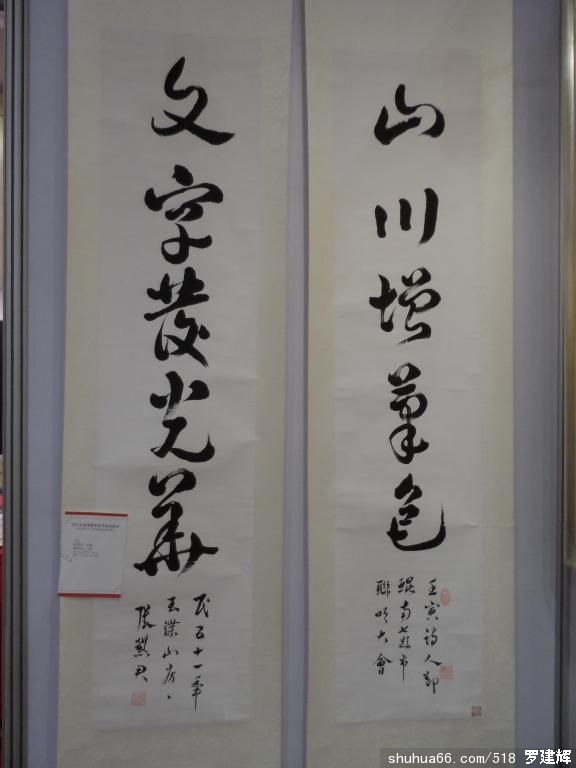 山川增華色
壬寅詩人節
鯤南七縣市
聯吟大會
文字發光華
民五十一年
玉渫山房
張默君
shuhua66.com/518 罗建辉